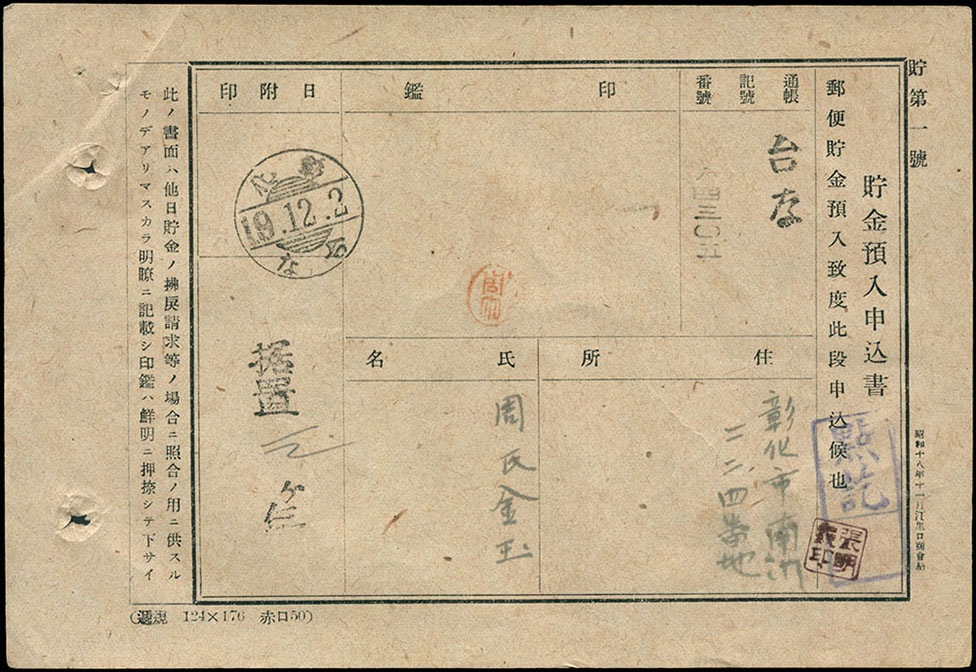 貯第一號
貯金預入申込書
郵便貯金預入致度此段申込候也
昭和十八年十一月江里口商會納
點訖
通帳
記號
番號
台存
印鑑
日附印
彰化
19.12.2
住所
彰化市南
二二四番地
氏名
周氏金玉
据置
此ノ書面ハ他日貯金ノ拂戾請求等ノ場合ニ照合ノ用ニ供スル
モノデアリマスカラ明瞭ニ記載シ印鑑ハ鮮明ニ押捺シテ下サイ
(遞規 124×176 赤口50)